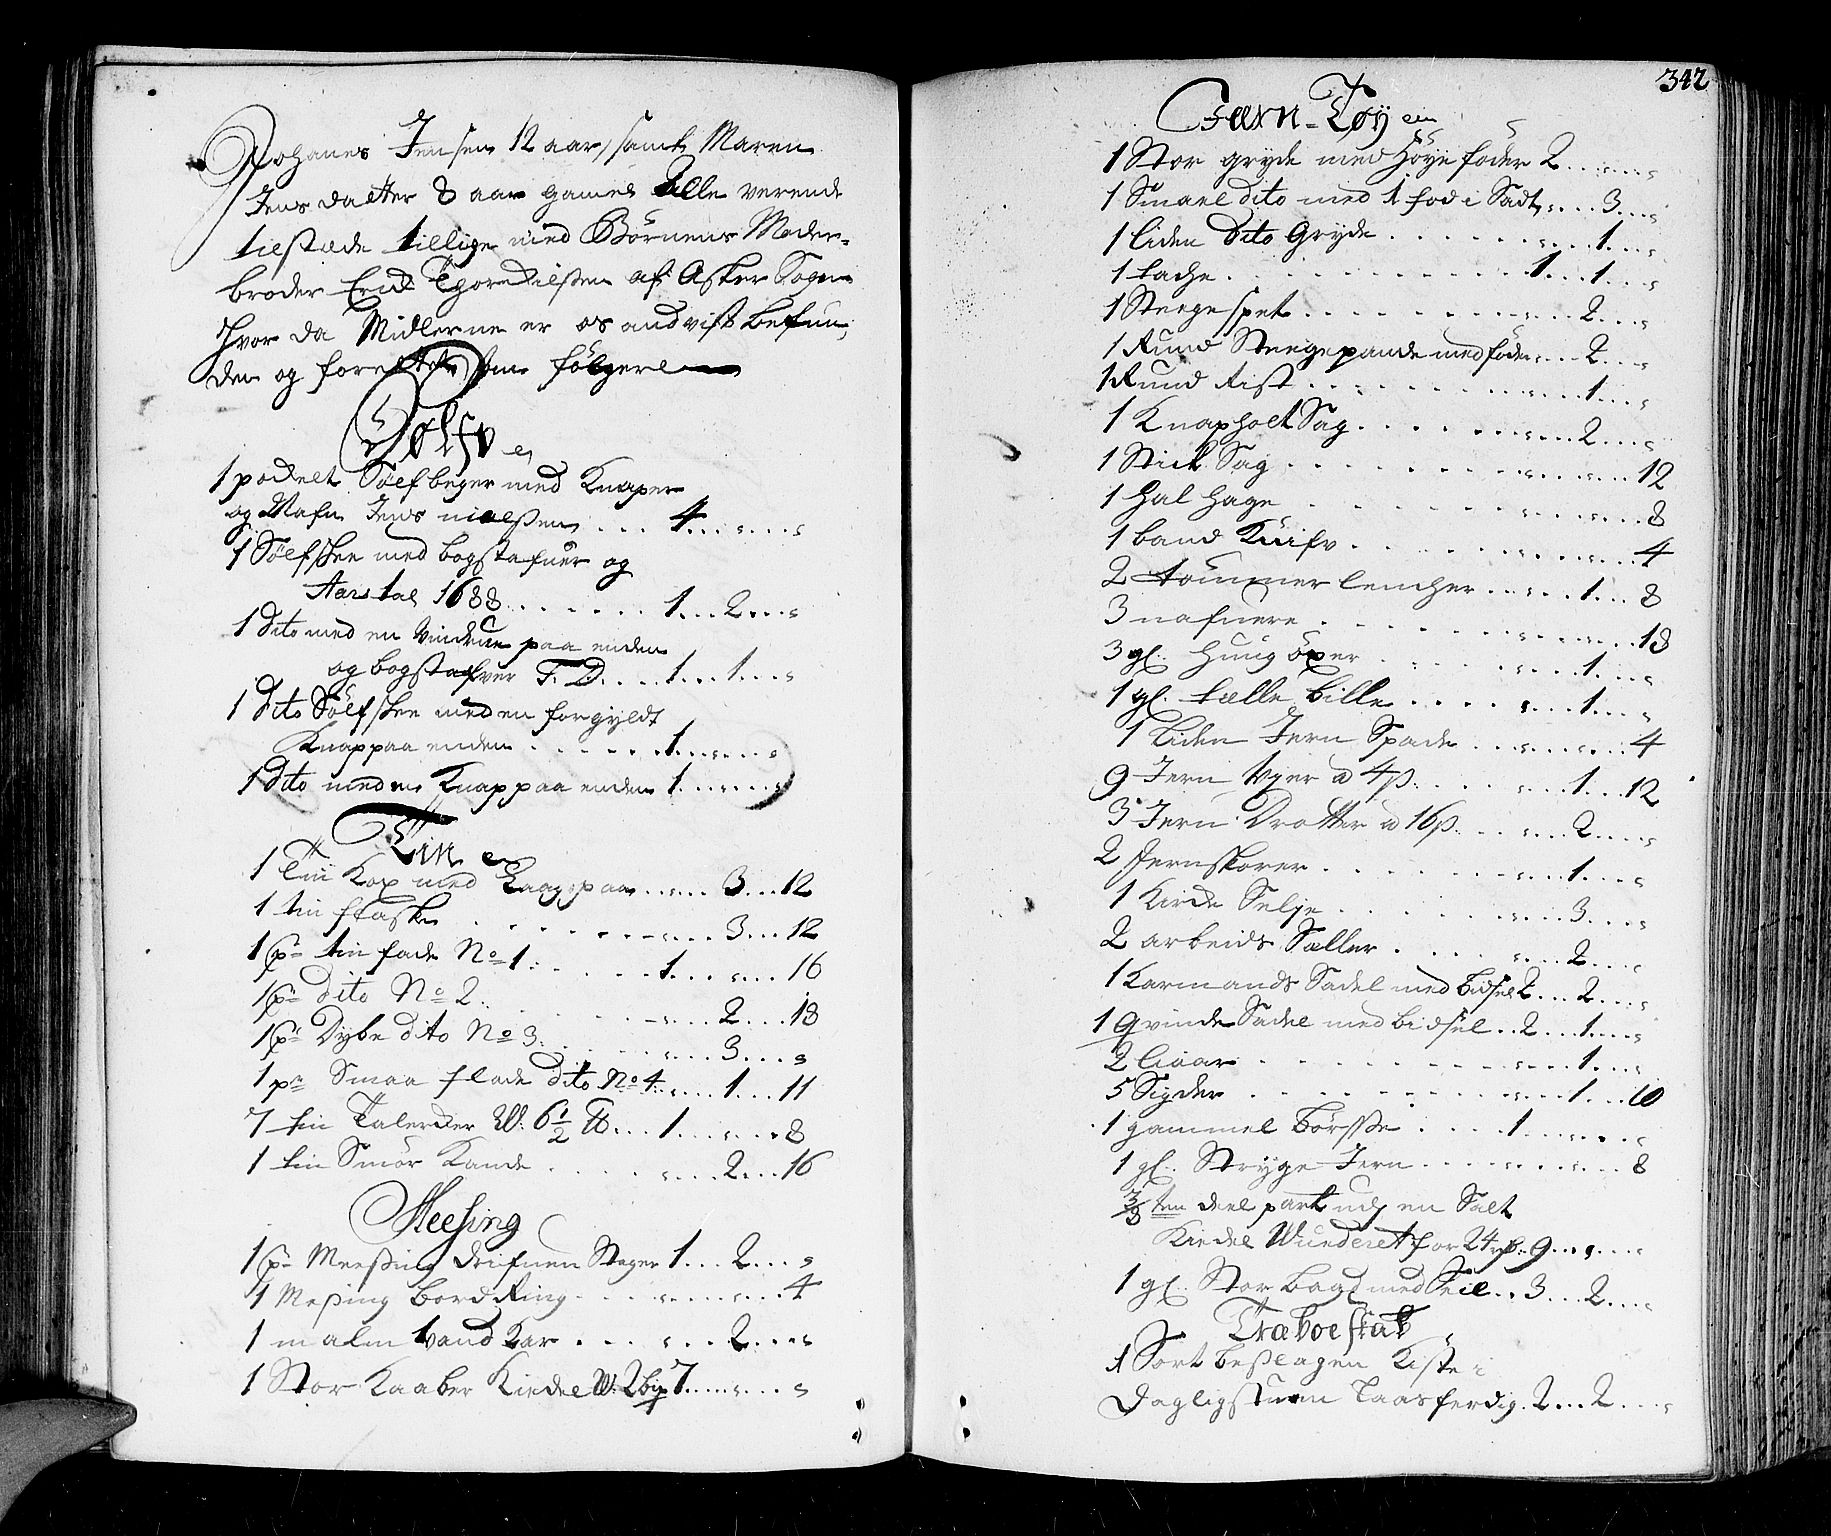 Johanes Jensen 12 aar, samt Maren
Jens datter 8 aar gamel Alle verende
tilstæde tillige med Børnens Moder-
broder Erik Thorkilsen af Asker Sogn
hvor da Midlerne er os andvist befun-
den og foretaten som følger
Sølfv
1 pockelt Sølf beger med Knaper
og Nafn Jens nielsen ... 4 ... „ ... „
1 Sølfskee med bogstafuer og
Aars tal 1688 ... 1 ... 2 ... „
1 dito med en Vindrue paa enden
og bogstafver F. D. ... 1 ... 1 ... „
1 dito Sølfskee med en forgyldt
Knap paa enden ... 1 ... „ ... „
1 dito med en Knap paa enden 1 ... „ ... „
Tin
1 Tin Kop med Laag paa ... „ ... 3 ... 12
1 tin flaske ... „ ... 3 ... 12
1 pr tin fade No 1 ... 1 ... „ ... 16
1 pr dito No 2 ... „ ... 2 ... 18
1 pr Dybe dito No 3 ... „ ... 3 ... „
1 pr Smaa flade dito No 4 ... „ ... 1 ... 11
7 tin Talercker W: 6½ ℔ ... 1 ... „ ... 8
1 tin Smør Kande ... „ ... 2 ... 16
Meesing
1 pr Meesing drifnen Stager 1 ... 2 ... „
1 Messing bord Ring ... „ ... „ ... 4
1 malm Vand Kar ... „ ... 2 ... „
1 Stor Kaaber Kiedel W: 2 bip 7 ... „ ... „
342
Jærn-Tøy
1 Stor gryde med høye føder 2 ... „ ... „
1 Smael dito med 1 fod i Sadt „ ... 3 ... „
1 liden dito Gryde ... „ ... 1 ... „
1 tache ... 1 ... 1 ... „
1 Steege spet ... „ ... 2 ... „
1 Rund Steegepande med føder „ ... 2 ... „
1 Rund Rist ... „ ... 1 ... „
1 Knapholt Sag ... „ ... 2 ... „
1 Stick Sag ... „ ... „ ... 12
1 hal hage ... „ ... „ ... 8
1 band Knifv ... „ ... „ ... 4
2 tømmer lencher ... „ ... 1 ... 8
3 nafuere ... „ ... „ ... 18
3 gl. hugg øxer ... „ ... 1 ... „
1 gl. tælle bille ... „ ... 1 ... „
1 liden Jern Spade ... „ ... „ ... 4
9 Jern Vger a 4 β ... „ ... 1 ... 12
3 Jern Drotter a 16 β ... „ ... 2 ... „
2 Jernskorer ... „ ... 1 ... „
1 Kircke Selje ... „ ... 3 ... „
2 arbeids Sæller ... „ ... 2 ... „
1 Karmands Sadel med bidsel 2 ... 2 ... „
1 Qvinde Sadel med bidsel ... 2 ... 1 ... „
2 liaar ... „ ... 1 ... „
5 Sigder ... „ ... 1 ... 10
1 gammel børsse ... 1 ... „ ... „
1 gl. Stryge Jern ... „ ... „ ... 8
3/8 ten deel part udj en Salt
Kiedel Wurderet for 24 rd: 9 ... „ ... „
1 gl. Stor baad med Seil ... 3 ... 2 ... „
Træboeskab
1 Sort beslagen Kiste i
Dagligstuen laasferdig. 2 ... 2 ... „